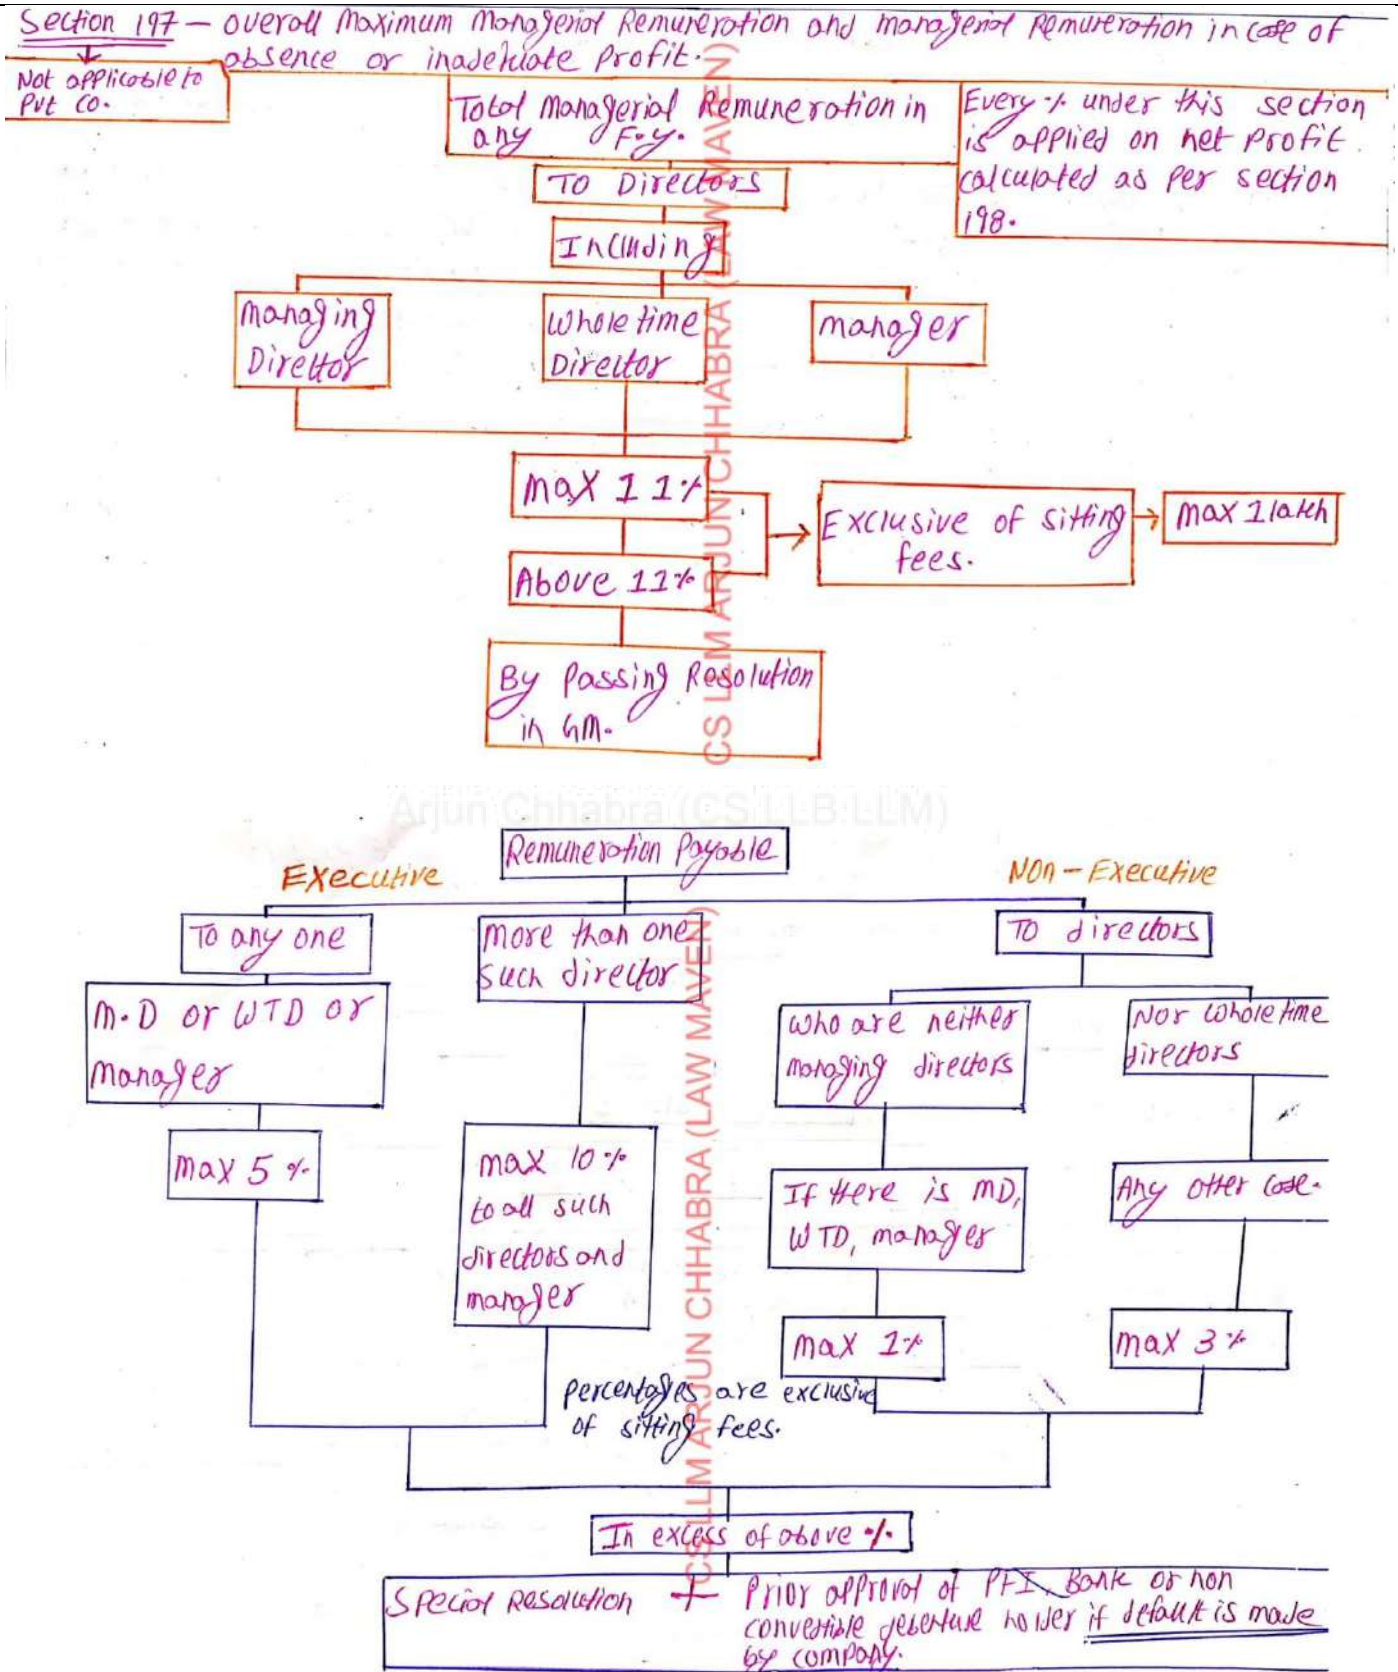 Section 197 — overall Maximum Managerial Remuneration and managerial Remuneration in case of
absence or inadequate Profit.
Not applicable to
Pvt Co.
Total Managerial Remuneration in
any F.y.
Every % under this section
is applied on net profit
calculated as per section
198.
TO Directors
Including
Managing
Director
Whole time
Director
manager
max 11%
Exclusive of sitting
fees.
max 1 lakh
Above 11%
By Passing Resolution
in GM.
CS LLM ARJUN CHHABRA (LAW MAVEN)
Arjun Chhabra (CS LLB LLM)
Remuneration Payable
Executive
NON-Executive
To any one
more than one
such director
TO directors
M.D or WTD or
manager
who are neither
managing directors
Nor whole time
directors
max 5 %
max 10 %
to all such
directors and
manager
If there is MD,
WTD, manager
Any other case.
max 1%
max 3 %
percentages are exclusive
of sitting fees.
In excess of above %
Special Resolution + Prior approval of PFI, Bank or non
convertible debenture holder if default is made
by company.
CS LLM ARJUN CHHABRA (LAW MAVEN)